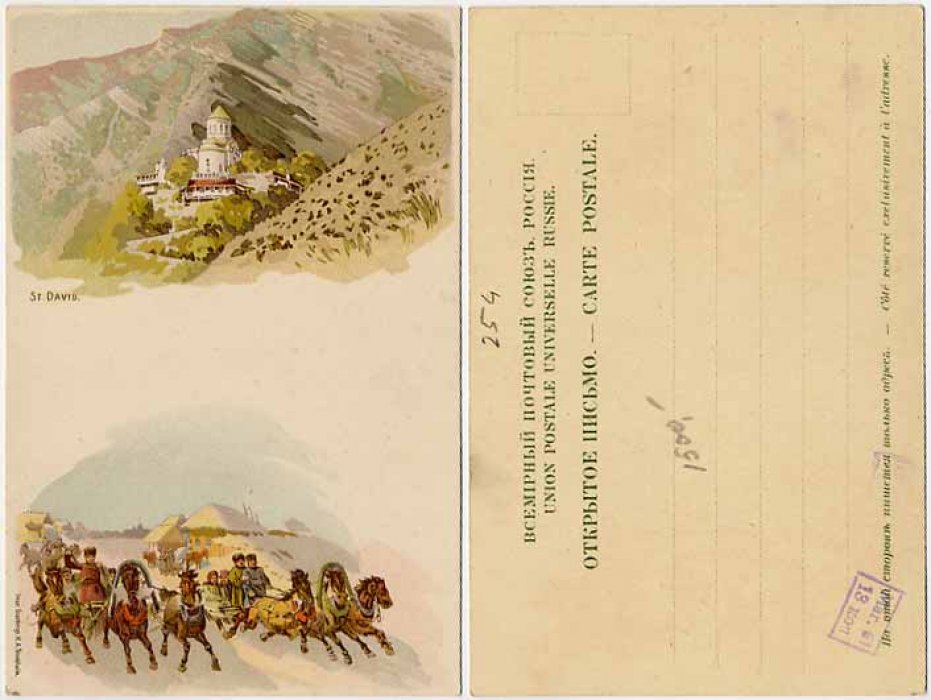 ST. DAVID.
254
ВСЕМІРНЫЙ ПОЧТОВЫЙ СОЮЗЪ. РОССІЯ.
UNION POSTALE UNIVERSELLE RUSSIE.
ОТКРЫТОЕ ПИСЬМО. — CARTE POSTALE.
На этой сторонѣ пишется только адресъ. — Côté reservé exclusivement à l'adresse.
Маг. 61
18 КОП